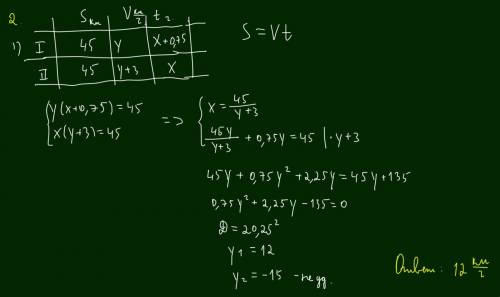 2.
S км V км/ч t ч
1) I 45 y x+0,75
II 45 y+3 x
S = Vt
{ y(x+0,75)=45
x(y+3)=45
=> { x = 45/(y+3)
45y/(y+3) + 0,75y = 45 | · y+3
45y + 0,75y² + 2,25y = 45y + 135
0,75y² + 2,25y - 135 = 0
D = 20,25²
y₁ = 12
y₂ = -15 - не уд.
Ответ: 12 км/ч